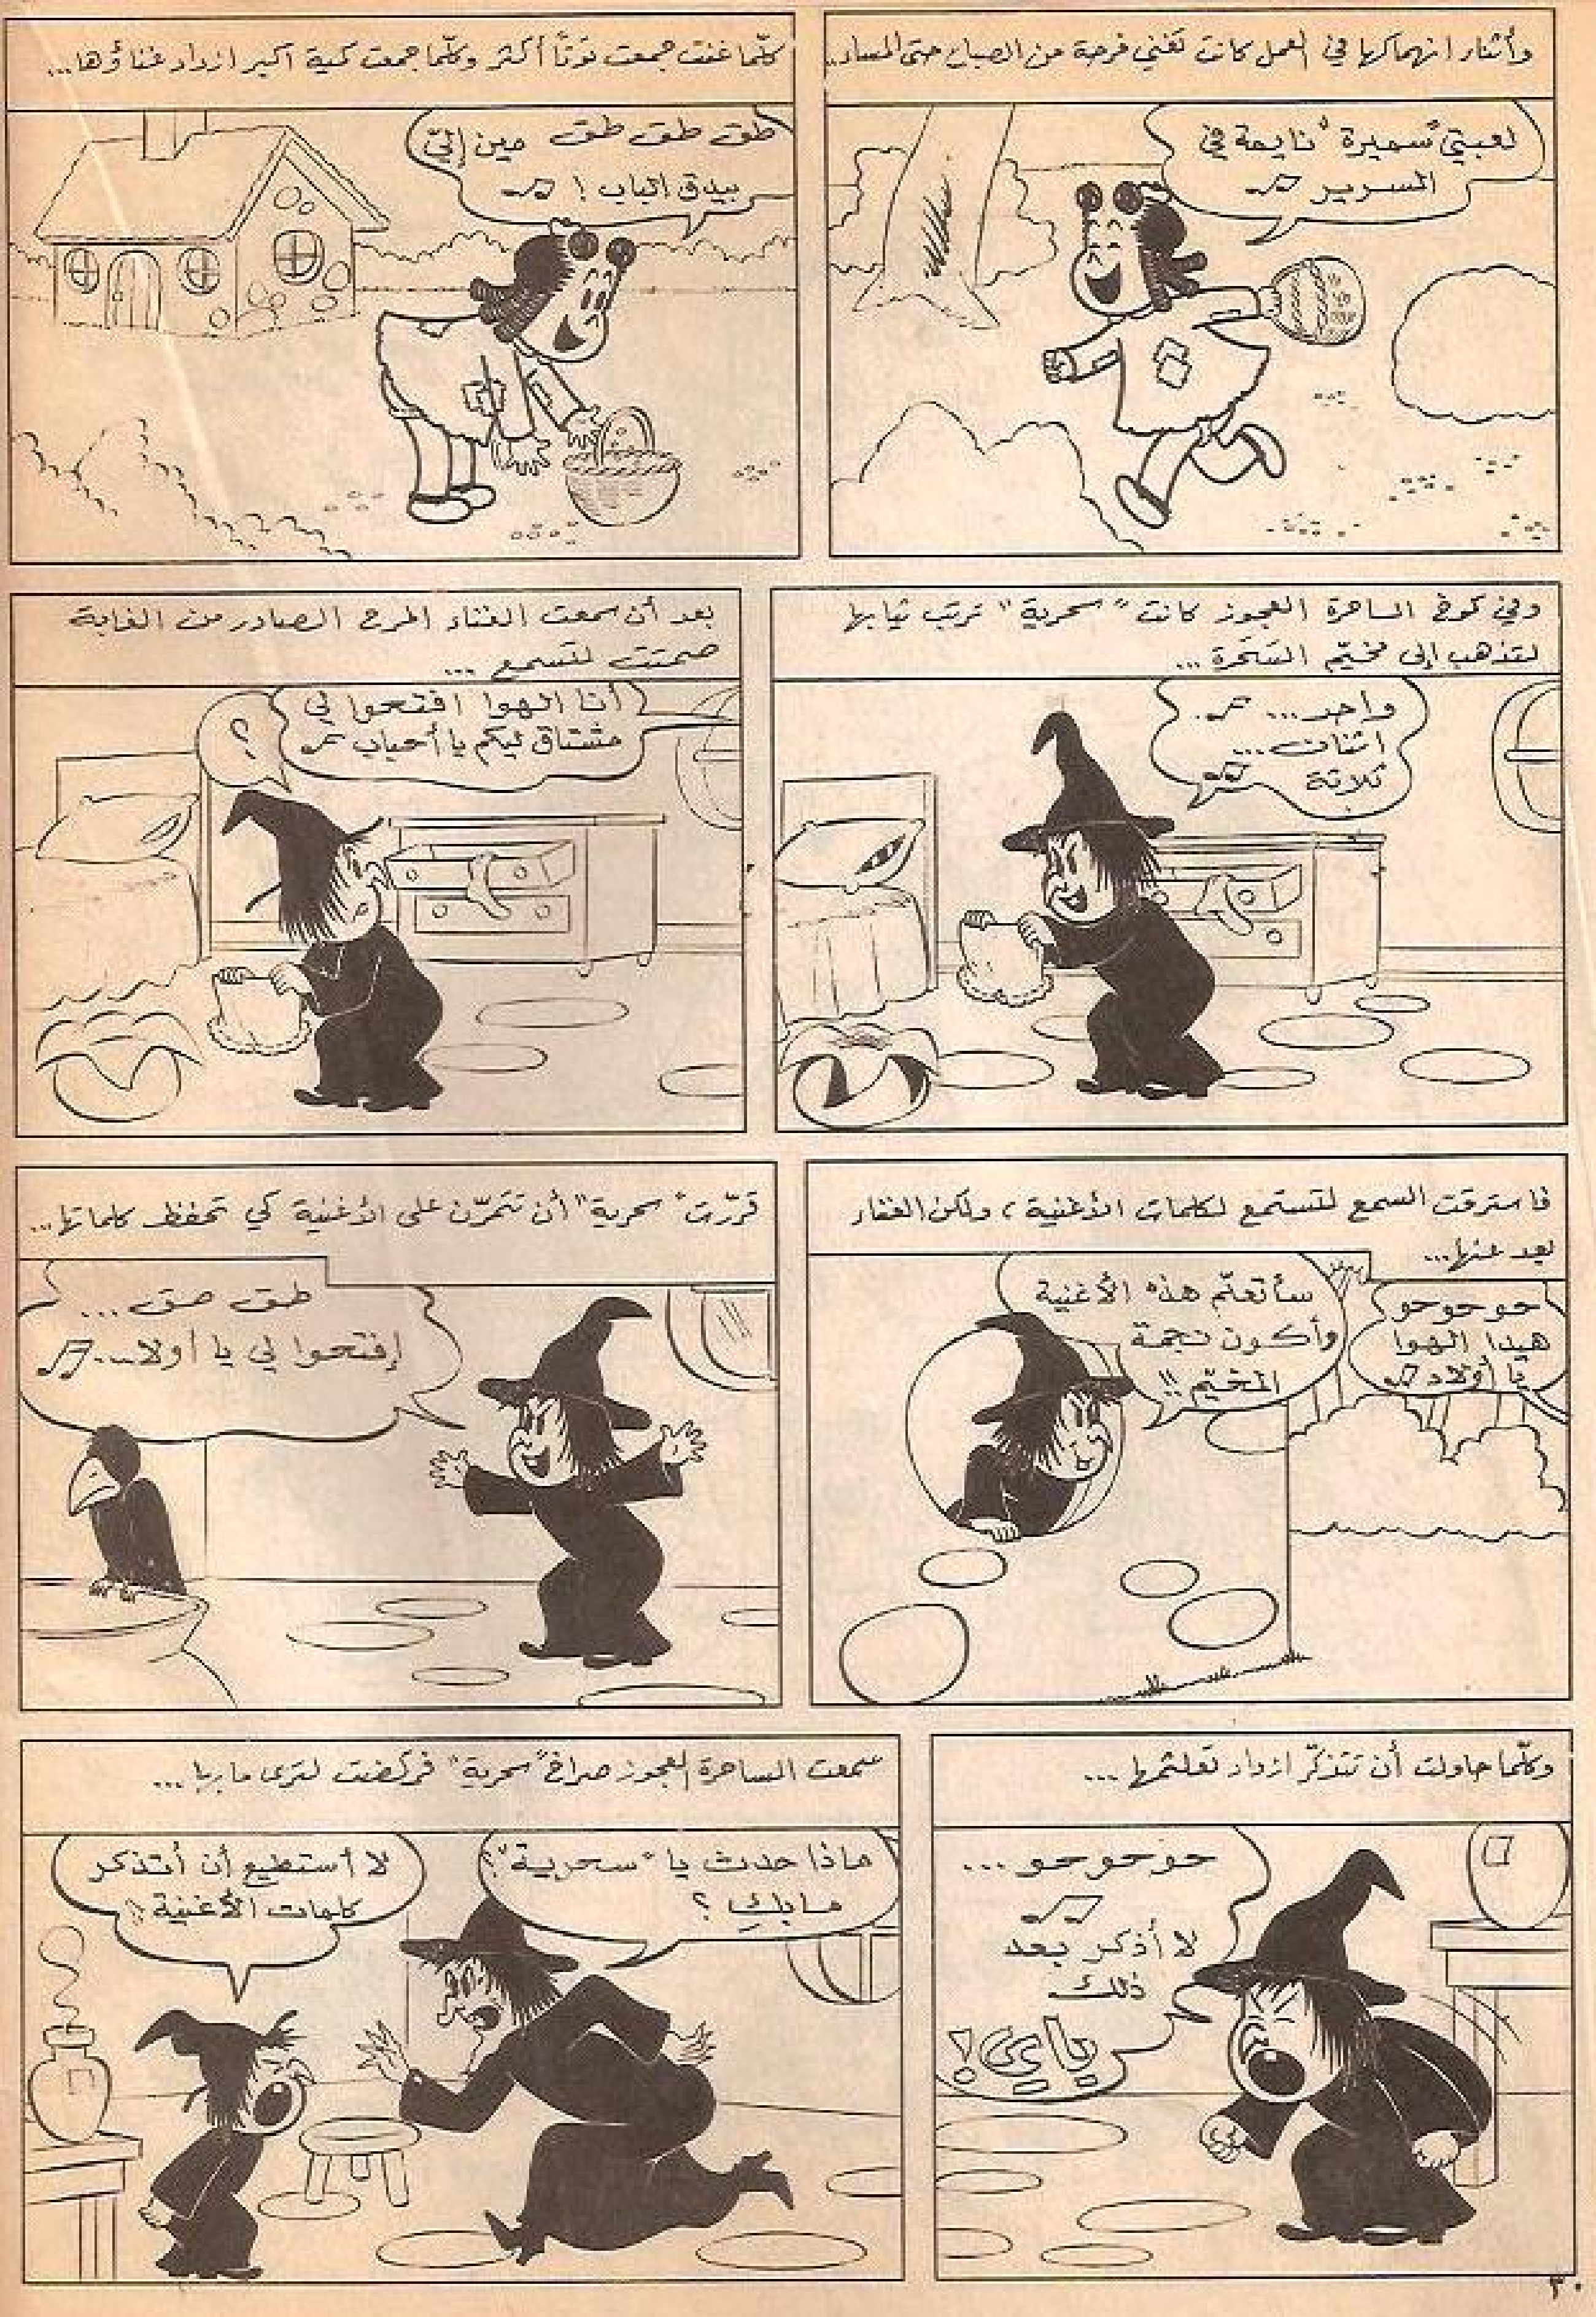 وأثناء انهماكها في العمل كانت تغني فرحة من الصباح حتى المساء..
لعبتي "سميرة" نايمة في
السرير
كلّما غنت جمعت توتاً أكثر وكلّما جمعت كمية أكبر ازداد غناؤها...
طق طق طق مين إللي
بيدق الباب !
وفي كوخ الساحرة العجوز كانت "سحرية" ترتب ثيابها
لتذهب إلى مخيّم السَحَرة ...
واحد ...
اثنان ...
ثلاثة
بعد أن سمعت الغناء المرح الصادر من الغابة
صمتت لتسمع ...
أنا الهوا افتحوا لي
مشتاق ليكم يا أحباب
؟
فاسترقت السمع لتستمع لكلمات الأغنية ، ولكن الغناء
بعد عنها...
حو حو حو
هيدا الهوا
يا أولاد
سأتعلّم هذه الأغنية
وأكون نجمة
المخيّم !!
قرّرت "سحرية" أن تتمرّن على الأغنية كي تحفظ كلماتها...
طق طق ...
إفتحوا لي يا أولا...
وكلّما حاولت أن تتذكّر ازداد تعلثمها ...
حو حو حو ...
لا أذكر بعد
ذلك
ياي!
سمعت الساحرة العجوز صراخ "سحرية" فركضت لترى ما بها ...
ماذا حدث يا "سحرية"؟
ما بكِ ؟
لا أستطيع أن أتذكر
كلمات الأغنية !!
٣٠